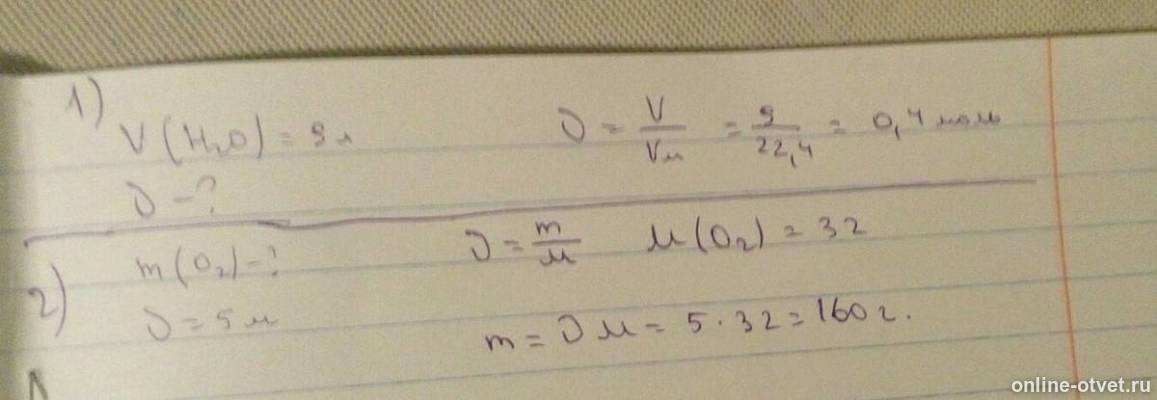 1)
V (H₂O) = 9 л
υ = V / Vм = 9 / 22,4 = 0,4 моль
υ - ?
2)
m (O₂) - ?
υ = m / M M (O₂) = 32
υ = 5 м
m = υ M = 5 · 32 = 160 г.
online-otvet.ru